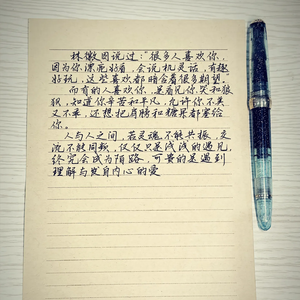 林徽因说过:“很多人喜欢你,
因为你漂亮好看,会说机灵话,有趣
好玩,这些喜欢都暗含着很多期望。”
而有的人喜欢你,是看见你哭和狼
狈,知道你辛苦和平凡,允许你不美
又不乖,还想把肩膀和糖果都塞给
你。
人与人之间,若灵魂不能共振,交
流不能同频,仅仅只是浅浅的遇见,
终究会成为陌路,可贵的是遇到
理解与发自内心的爱